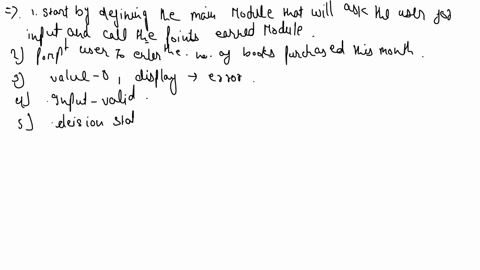 =>) 1. Start by defining the main Module that will ask the user for
input and call the Points earned Module.
2) Pompt user to enter the no. of books purchased this month.
3) value-0, display → error.
4) Input-valid.
5) decision stat